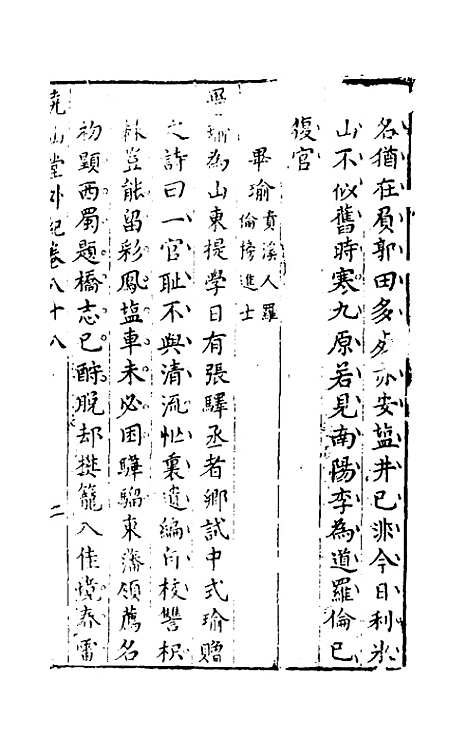 名猶在負郭田多亦安盐井已非今日利氷
山不似舊時寒九原若見南陽李為道羅倫已
復官
畢瑜貴溪人羅倫榜進士
畢瑜為山東提學日有張驛丞者鄉試中式瑜贈
之詩曰一官耻不與清流忙裏遺編自校讐枳
林豈能留彩鳳盐車未必困驊騮東藩領薦名
初顯西蜀題橋志已酧脫却樊籠入佳境春雷
堯山堂外紀卷八十八
二